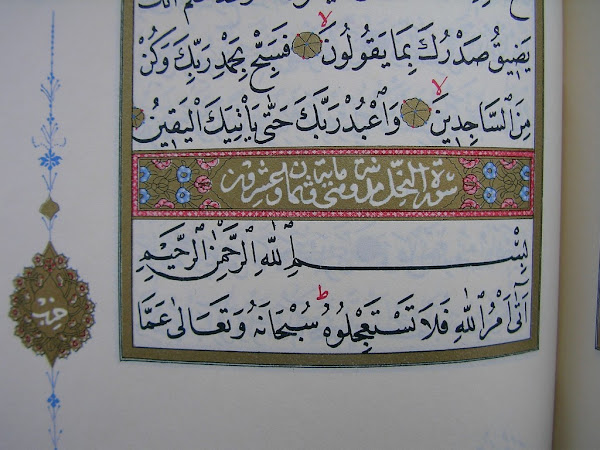 انك
يَضِيقُ صَدْرُكَ بِمَا يَقُولُونَ لا فَسَبِّحْ بِحَمْدِ رَبِّكَ وَكُنْ
مِنَ السَّاجِدِينَ لا وَاعْبُدْ رَبَّكَ حَتّٰى يَأْتِيَكَ الْيَقِينُ
سورة النحل وهي ماية وثمان وعشرون
بِسْمِ اللّٰهِ الرَّحْمٰنِ الرَّحِيمِ
اَتٰٓى اَمْرُ اللّٰهِ فَلَا تَسْتَعْجِلُوهُ ط سُبْحَانَهُ وَتَعَالٰى عَمَّا
حزب